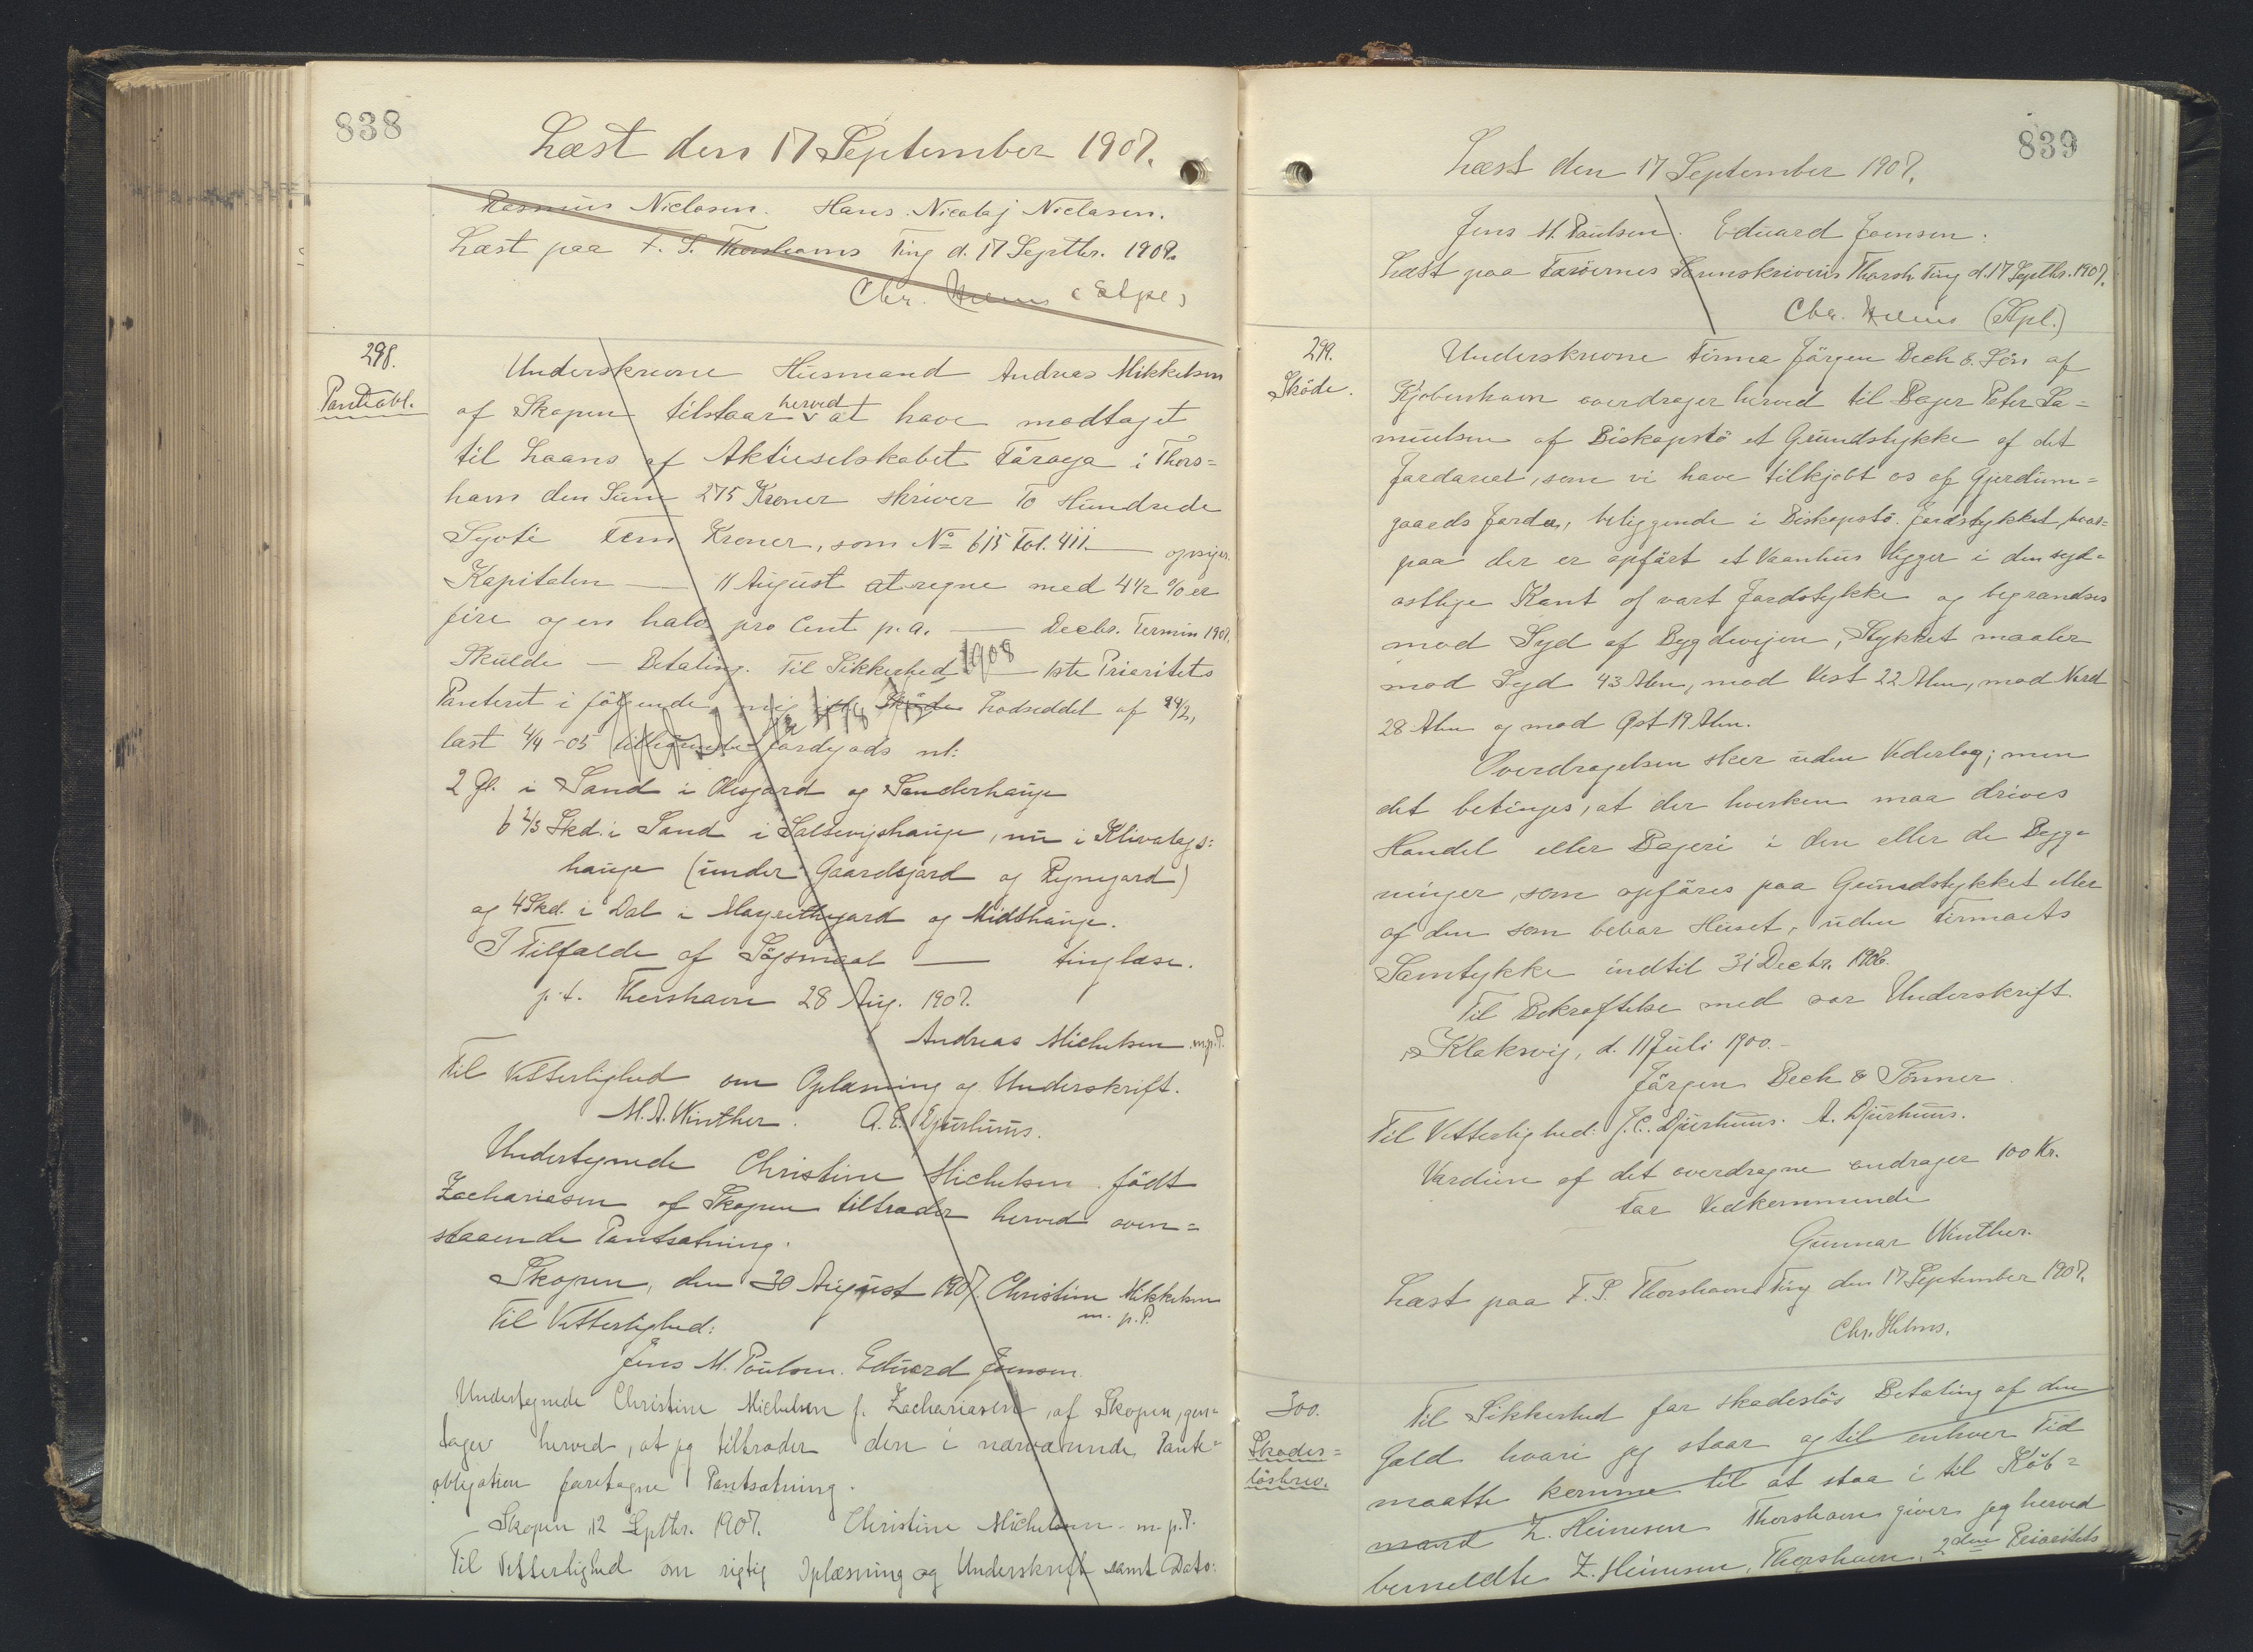 838
Læst den 17 September 1907.
Rasmus Niclasen. Hans Nicolaj Niclasen.
Læst paa F. S. Thorshavns Ting d. 17 Septbr. 1907.
Chr. Helms (Stpl)
298.
Pantobl.
Underskrevne Husmand Andreas Mikkelsen
af Skopun tilstaar herved at have modtaget
til Laans af Aktieselskabet Føroya i Thors=
havn den Sum 275 Kroner skriver To Hundrede
Syvti Fem Kroner, som No 615 Fol. 411. — opsiges.
Kapitalen — 11 August at regne med 4 1/2 % er
fire og en halv pro Cent p. a. — Decbr. Termin 1907.
1908
Skulde — Betaling. Til Sikkerhed — 1ste Prioritets
Panteret i følgende mig Skøde Lodseddel af
læst 4/4 - 05 Jordegods nl:
2 Gl. i Sand i Olesjord og Sanderhauge
6 2/3 Skd. i Sand i Saltevigshauge, nu i Klivalags=
hauge (under Gaardsjord og Rynegard)
og 4 Skd. i Dal i Magrethgard og Midthauge.
I Tilfælde af Søgsmaal — tinglæse.
p. t. Thorshavn 28 Aug. 1907.
Andreas Michelsen m. p. P.
Til Vitterlighed om Oplæsning og Underskrift.
M. A. Winther. A. E. Djurhuus.
Undertegnede Christine Michelsen født
Zachariasen af Skopun tiltræder herved oven=
staaende Pantsætning.
Skopun, den 30 August 1907. Christine Mikkelsen
m. p. P.
Til Vitterlighed:
Jens M. Poulsen. Eduard Joensen.
Undertegnede Christine Michelsen f. Zachariasen, af Skopun, gen=
tager herved, at jeg tiltræder den i nærværende Pant=
obligation foretagne Pantsætning.
Skopun 12 Septbr. 1907. Christine Michelsen m. p. P.
Til Vitterlighed om rigtig Oplæsning og Underskrift samt Dato:
839
Læst den 17 September 1907.
Jens M. Paulsen. Eduard Joensen.
Læst paa Færøernes Sorenskriveris Thorsh. Ting d. 17 Septbr. 1907.
Chr. Helms (Stpl.)
299.
Skøde.
Underskrevne Firma Jørgen Bech & Søn af
Kjøbenhavn overdrager herved til Bager Peter Sa=
muelsen af Biskopstø et Grundstykke af det
Jordareal, som vi have tilkjøbt os af Gjerdum=
gaards Jorder, beliggende i Biskopstø. Jordstykket hvor=
paa der er opført et Vaanhus ligger i den syd=
østlige Kant af vort Jordstykke og begrændses
mod Syd af Bygdevejen, Stykket maaler
mod Syd 43 Alen, mod Vest 22 Alen, mod Nord
28 Alen og mod Øst 19 Alen.
Overdragelsen sker uden Vederlag; men
det betinges, at der hverken maa drives
Handel eller Bageri i den eller de Byg=
ninger, som opføres paa Grundstykket eller
af den som bebor Huset, uden Firmaets
Samtykke indtil 31 Decbr. 1906.
Til Bekræftelse med vor Underskrift.
Klaksvig, d. 11 Juli 1900. -
Jørgen Bech & Sønner.
Til Vitterlighed: J. C. Djurhuus. A. Djurhuus.
Værdien af det overdragne andrager 100 Kr.
For Vedkommende
Gunnar Winther.
Læst paa F. S. Thorshavns Ting den 17 September 1907.
Chr. Helms.
300.
Skades=
løsbrev.
Til Sikkerhed for skadesløs Betaling af den
Gæld hvori jeg staar og til enhver Tid
maatte komme til at staa i til Køb=
mand Z. Heinesen Thorshavn giver jeg herved
bemeldte Z. Heinesen, Thorshavn, 2den Prioritets